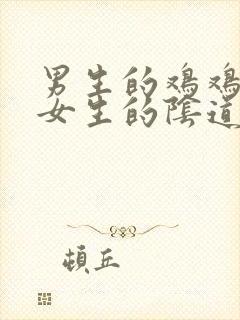 男生的鸡鸡
女生的陰道
頓丘